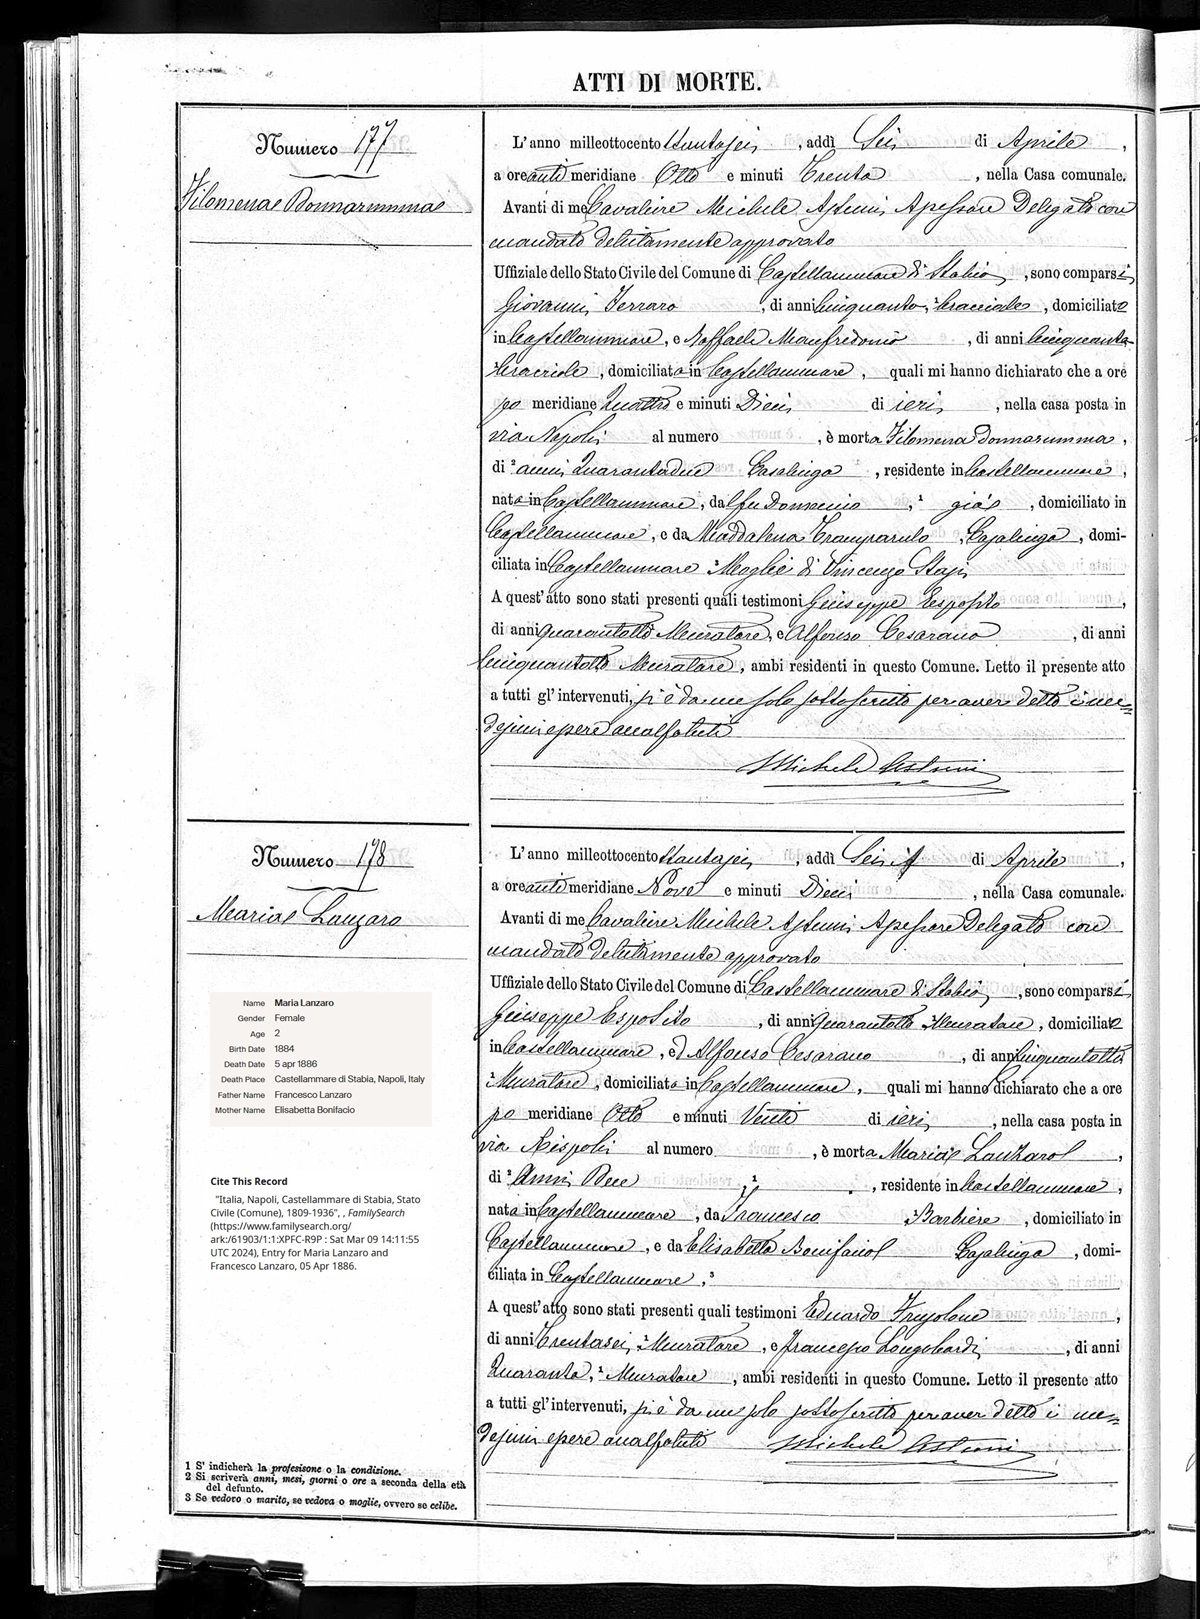 ATTI DI MORTE.
Numero 177
Filomena Donnarumma
L'anno milleottocento ottantasei, addì Sei di Aprile,
a ore anti meridiane Otto e minuti Trenta, nella Casa comunale.
Avanti di me Cavaliere Michele Astuni Assessore Delegato con
mandato debitamente approvato
Uffiziale dello Stato Civile del Comune di Castellammare di Stabia, sono comparsi
Giovanni Ferraro, di anni cinquanta, bracciale, domiciliato
in Castellammare, e Raffaele Manfredonio, di anni cinquanta
bracciale, domiciliato in Castellammare, quali mi hanno dichiarato che a ore
po meridiane Quattro e minuti Dieci di ieri, nella casa posta in
via Napoli al numero , è morta Filomena Donnarumma,
di 2 anni Quarantadue Casalinga 1, residente in Castellammare,
nata in Castellammare, dal fu Domenico, 1 già, domiciliato in
Castellammare, e da Maddalena Tramparulo, Casalinga, domi-
ciliata in Castellammare 3 Moglie di Vincenzo Stasi
A quest'atto sono stati presenti quali testimoni Giuseppe Esposito,
di anni quarantotto Muratore, e Alfonso Cesarano, di anni
Cinquantotto Muratore, ambi residenti in questo Comune. Letto il presente atto
a tutti gl'intervenuti, si è da me solo sottoscritto per aver detto i me=
desimi essere analfabeti
Michele Astuni
Numero 178
Maria Lanzaro
L'anno milleottocento ottantasei, addì Sei di Aprile,
a ore anti meridiane Nove e minuti Dieci, nella Casa comunale.
Avanti di me Cavaliere Michele Astuni Assessore Delegato con
mandato debitamente approvato
Uffiziale dello Stato Civile del Comune di Castellammare di Stabia, sono comparsi
Giuseppe Esposito, di anni quarantotto Muratore, domiciliato
in Castellammare, ed Alfonso Cesarano, di anni cinquantotto
1 Muratore, domiciliato in Castellammare, quali mi hanno dichiarato che a ore
po meridiane Otto e minuti Venti di ieri, nella casa posta in
via Rispoli al numero , è morta Maria Lanzaro,
di 2 Anni Due 1, residente in Castellammare,
nata in Castellammare, da Francesco 1 Barbiere, domiciliato in
Castellammare, e da Elisabetta Bonifacio Casalinga, domi-
ciliata in Castellammare, 3
A quest'atto sono stati presenti quali testimoni Eduardo,
di anni Trentasei, 1 Muratore, e Francesco Longobardi, di anni
Quaranta, 1 Muratore, ambi residenti in questo Comune. Letto il presente atto
a tutti gl'intervenuti, si è da me solo sottoscritto per aver detto i me=
desimi essere analfabeti Michele Astuni
Name Maria Lanzaro
Gender Female
Age 2
Birth Date 1884
Death Date 5 apr 1886
Death Place Castellammare di Stabia, Napoli, Italy
Father Name Francesco Lanzaro
Mother Name Elisabetta Bonifacio
Cite This Record
"Italia, Napoli, Castellammare di Stabia, Stato
Civile (Comune), 1809-1936", , FamilySearch
(https://www.familysearch.org/
ark:/61903/1:1:XPFC-R9P : Sat Mar 09 14:11:55
UTC 2024), Entry for Maria Lanzaro and
Francesco Lanzaro, 05 Apr 1886.
1 S' indicherà la profesisone o la condizione.
2 Si scriverà anni, mesi, giorni o ore a seconda della età
del defunto.
3 Se vedovo o marito, se vedova o moglie, ovvero se celibe.